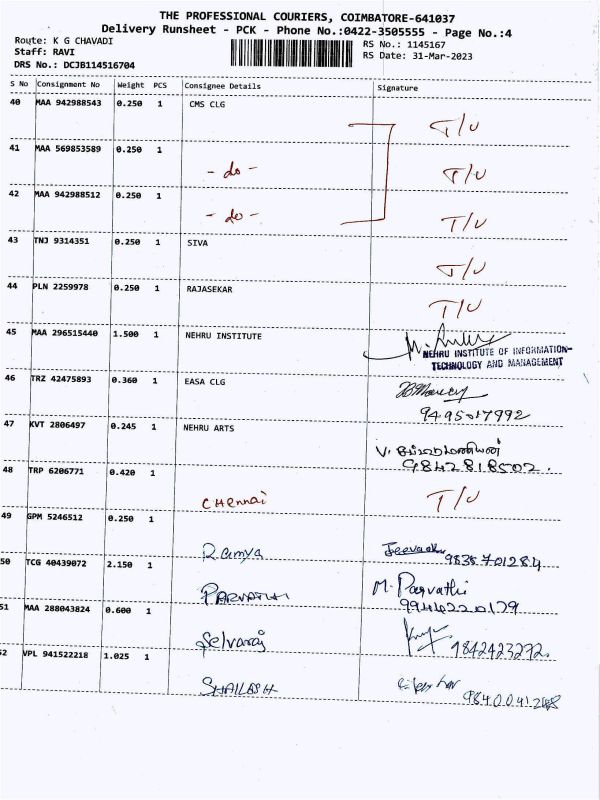 THE PROFESSIONAL COURIERS, COIMBATORE-641037
Delivery Runsheet - PCK - Phone No.:0422-3505555 - Page No.:4
Route: K G CHAVADI
RS No.: 1145167
Staff: RAVI
RS Date: 31-Mar-2023
DRS No.: DCJB114516704
S No Consignment No Weight PCS Consignee Details Signature
40 MAA 942988543 0.250 1 CMS CLG T/U
41 MAA 569853589 0.250 1 - do - T/U
42 MAA 942988512 0.250 1 - do - T/U
43 TNJ 9314351 0.250 1 SIVA T/U
44 PLN 2259978 0.250 1 RAJASEKAR T/U
45 MAA 296515440 1.500 1 NEHRU INSTITUTE
NEHRU INSTITUTE OF INFORMATION-
TECHNOLOGY AND MANAGEMENT
46 TRZ 42475893 0.360 1 EASA CLG
9495017992
47 KVT 2806497 0.245 1 NEHRU ARTS
9842818502.
48 TRP 6206771 0.420 1 CHennai T/U
49 GPM 5246512 0.250 1 Ramya
9838701284
50 TCG 40439072 2.150 1 PARVATHI M. Parvathi
9944220179
51 MAA 288043824 0.600 1 Selvaraj 9842423272
52 VPL 941522218 1.025 1 SHAILESH